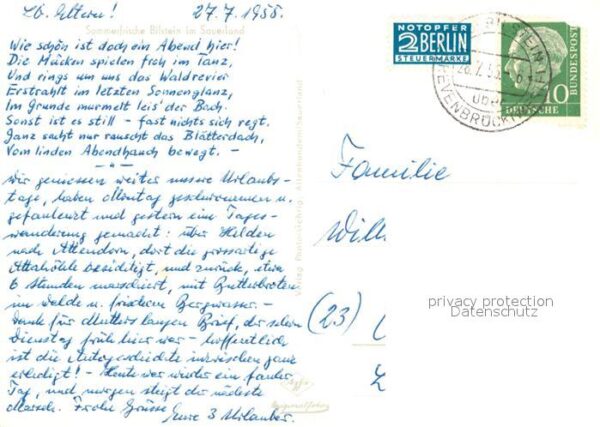 Lb. Eltern! 27.7.1955.
Sommerfrische Bilstein im Sauerland
Wie schön ist doch ein Abend hier!
Die Mücken spielen froh im Tanz,
Und rings um uns das Waldrevier
Erstrahlt im letzten Sonnenglanz,
Im Grunde murmelt leis' der Bach.
Sonst ist es still - fast nichts sich regt,
Ganz sacht nur rauscht das Blätterdach,
Vom linden Abendhauch bewegt. -
Wir geniessen weiter unsere Urlaubs-
tage, haben Montag geschwommen u.
gefaulenzt und gestern eine Tages-
wanderung gemacht: über Helden
nach Attendorn, dort die grossartige
Attahöhle besichtigt, und zurück, etwa
6 Stunden marschiert, mit Butterbroten
im Walde u. frischem Bergwasser. -
Dank für Mutters langen Brief, der schon
Dienstag früh hier war - hoffentlich
ist die Autogeschichte inzwischen ganz
erledigt! - Heute war wieder ein fauler
Tag, und morgen steigt der nächste
Marsch. Frohe Grüsse Eure 3 Urlauber.
NOTOPFER
2 BERLIN
STEUERMARKE
BILSTEIN
über
GREVENBRÜCK
DEUTSCHE
BUNDESPOST
10
Familie
Will
(23)
privacy protection
Datenschutz
Agfa